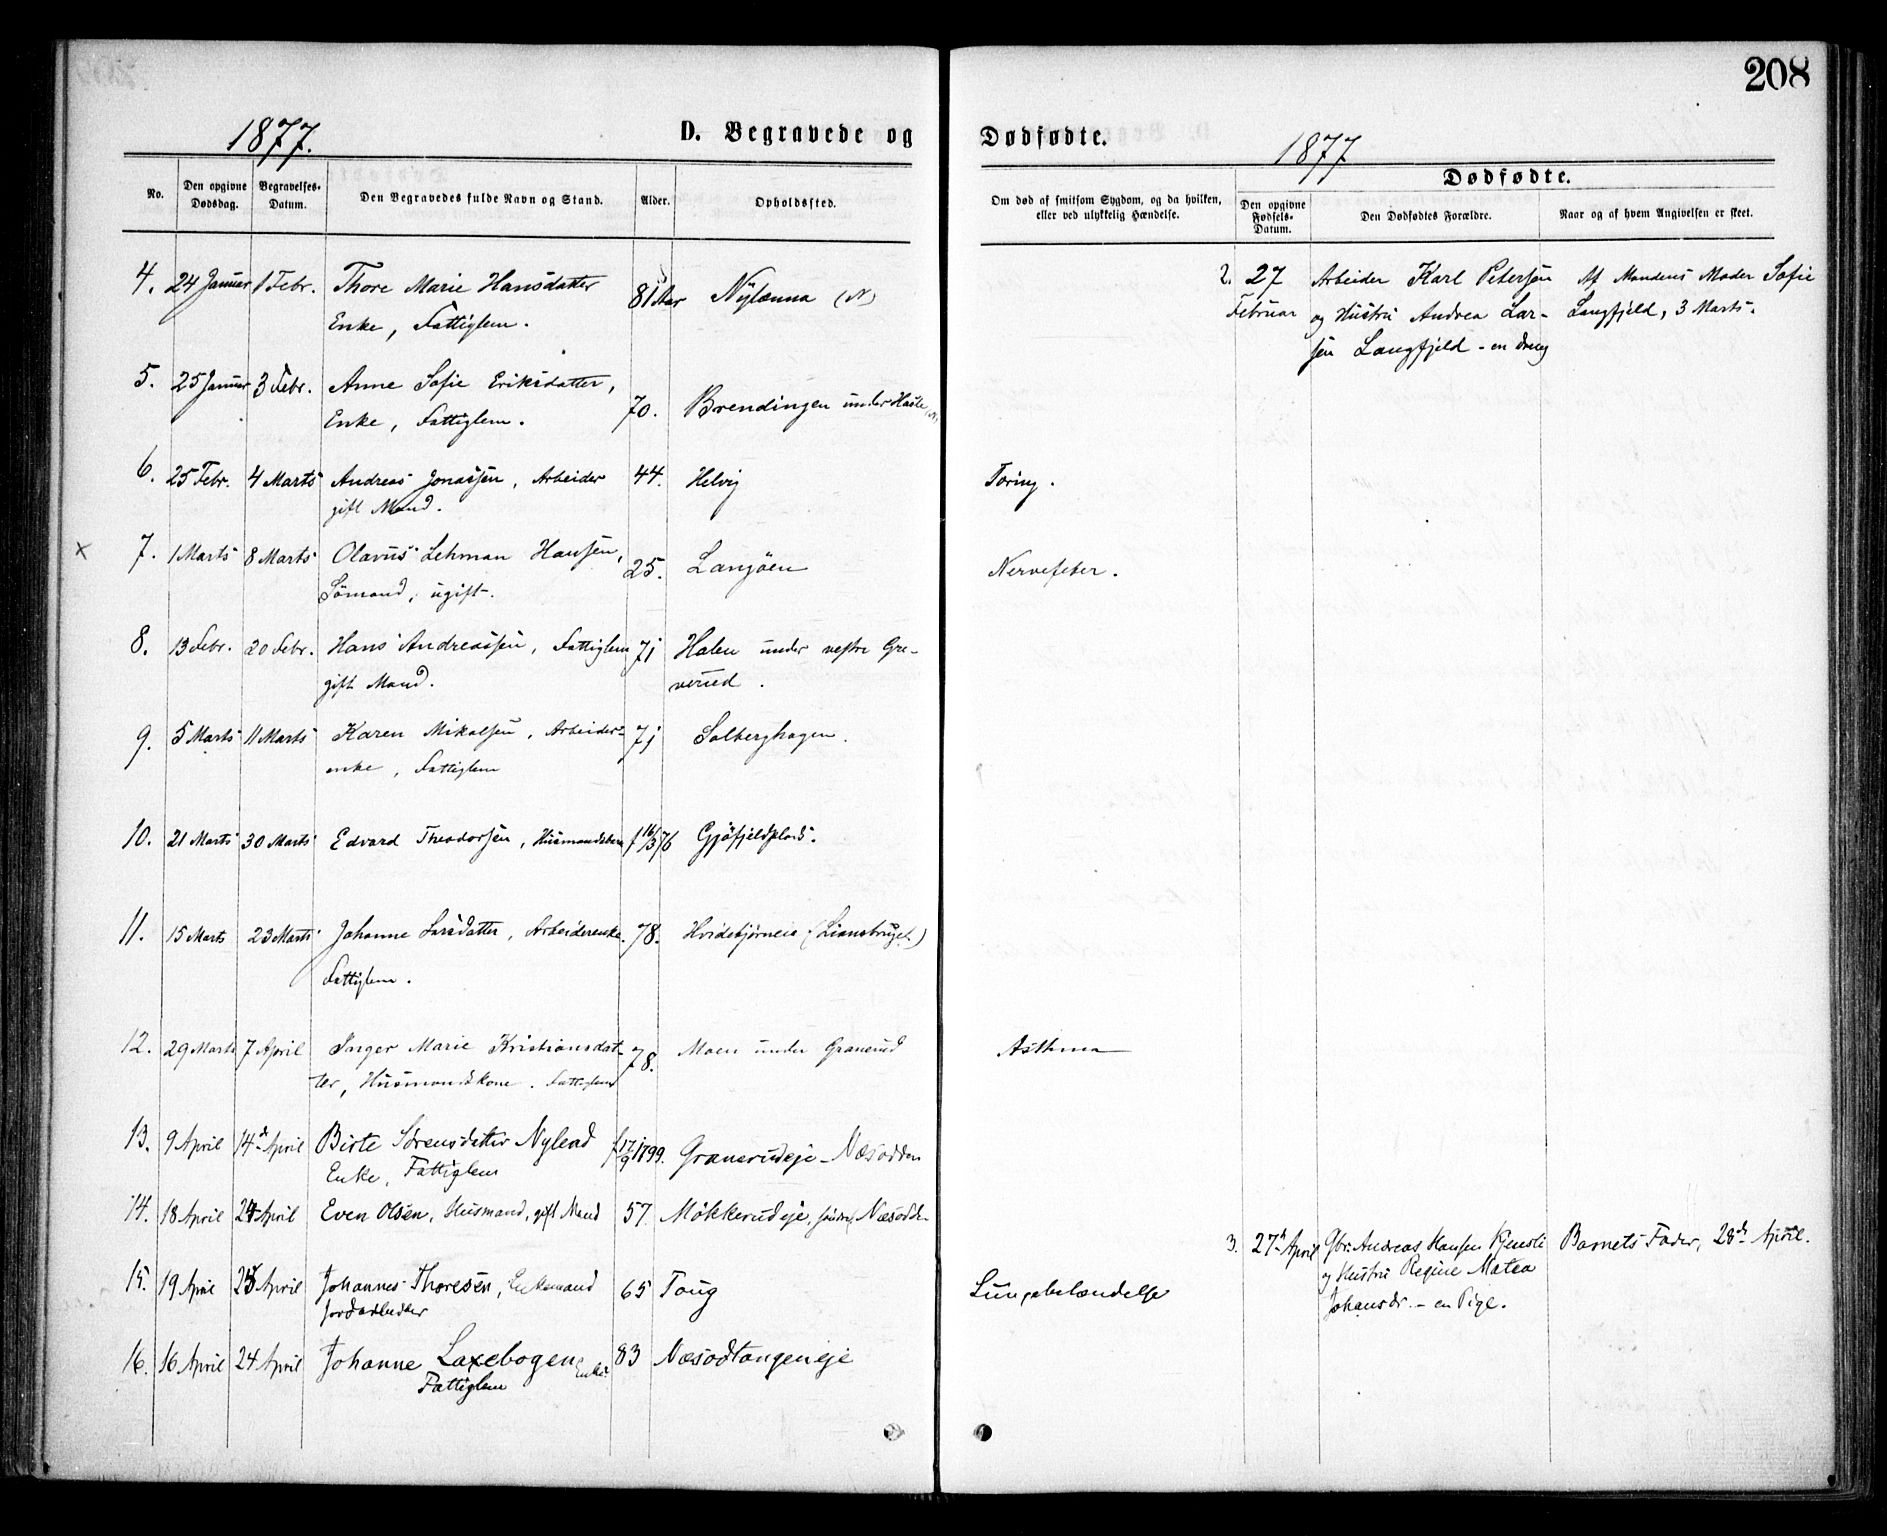 208
1877.
D. Begravede og
Dødfødte.
1877
No.
Den opgivne Dødsdag.
Begravelses-Datum.
Den Begravedes fulde Navn og Stand.
Alder.
Opholdssted.
Om død af smitsom Sygdom, og da hvilken, eller ved ulykkelig Hændelse.
Dødfødte.
Den opgivne Fødsels-Datum.
Den Dødfødtes Forældre.
Naar og af hvem Angivelsen er skeet.
4. 24 Januar 1 Febr. Thore Marie Hansdatter 81 Aar Nylænna (N)
Enke, Fattiglem.
5. 25 Januar 3 Febr. Anne Sofie Eriksdatter, 70. Brendingen under
Enke, Fattiglem.
6. 25 Febr. 4 Marts Andreas Jonassen, Arbeider 44. Helvig Tæring.
gift Mand.
7. 1 Marts 8 Marts Olavus Lehman Hansen, 25. Langöen Nervefeber.
Sömand, ugift.
8. 13 Febr. 20 Febr. Hans Andreassen, Fattiglem 71 Halen under vestre Gre-
gift Mand. verud.
9. 5 Marts 11 Marts Karen Mikalsen, Arbeider- 71 Solberghagen.
enke, Fattiglem
10. 21 Marts 30 Marts Edvard Theodorsen, Husmandsbarn f 16/3 76 Gjöfjeldplads.
11. 15 Marts 23 Marts Johanne Larsdatter, Arbeiderenke. 78. Hvidebjørneie (Liansbruget)
Fattiglem.
12. 29 Marts 7 April Inger Marie Kristiansdat- 78. Moen under Granerud Asthma
ter, Husmandskone. Fattiglem
13. 9 April 14d April Birte Sørensdatter Nylend f 17/9 1799. Granerudeje - Næsodden
Enke, Fattiglem
14. 18 April 24 April Even Olsen, Husmand, gift Mand 57. Møkkerudeje, søndre, Næsodden
15. 19 April 25 April Johannes Thoresen, Enkemand 65 Toug Lungebetændelse
Jordarbeider
16. 16 April 24 April Johanne Laxebogen Enke. 83 Næsodtangeneje
Fattiglem
2. 27 Arbeider Karl Petersen Af Mandens Moder Sofie
Februar og Hustru Andrea Lar- Langfjeld, 3 Marts.
sen Langfjeld - en dreng
3. 27d April Gbr. Andreas Hansen Kjensli Barnets Fader, 28d April.
og Hustru Regine Matea
Johansdr. - en Pige.